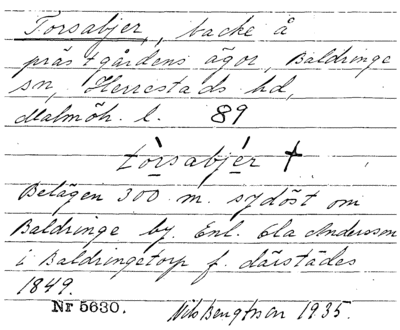 Torsabjer, backe å
prästgårdens ägor, Baldringe
sn, Herrestads hd,
Malmöh. l. 89
tòrsabjér †
Belägen 300 m. sydöst om
Baldringe by. Enl. Ola Andersson
i Baldringetorp f. därstädes
1849.
Nr 5630. Nils Bengtsson 1935.